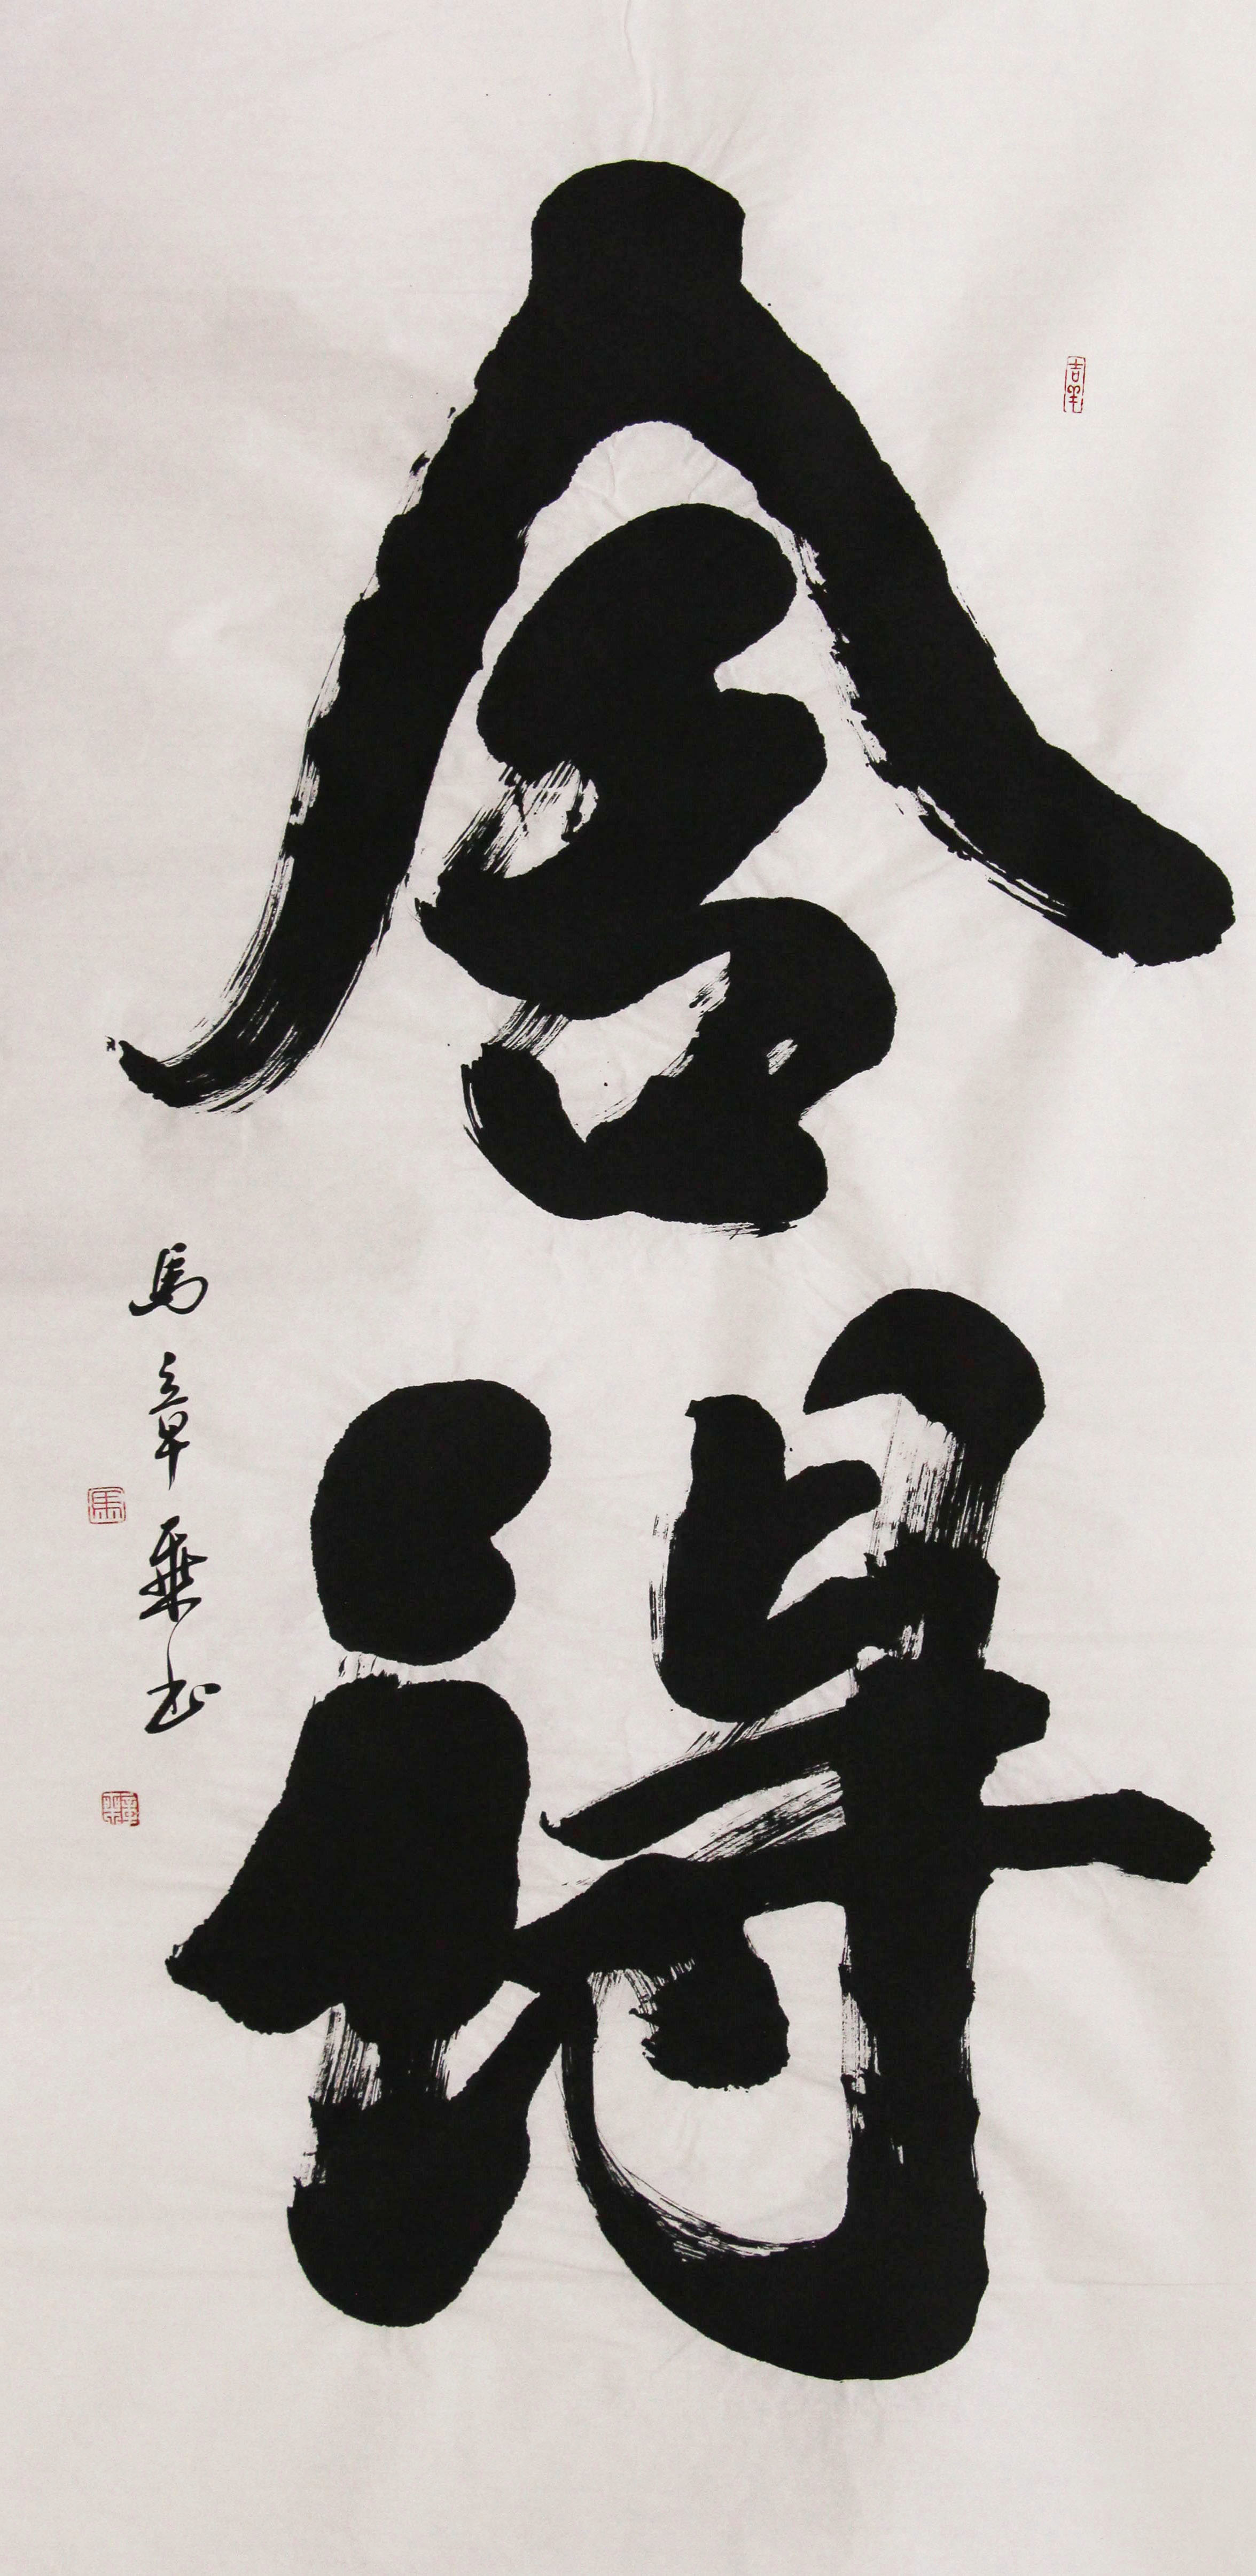 舍得
馬章乘书
吉羊
馬